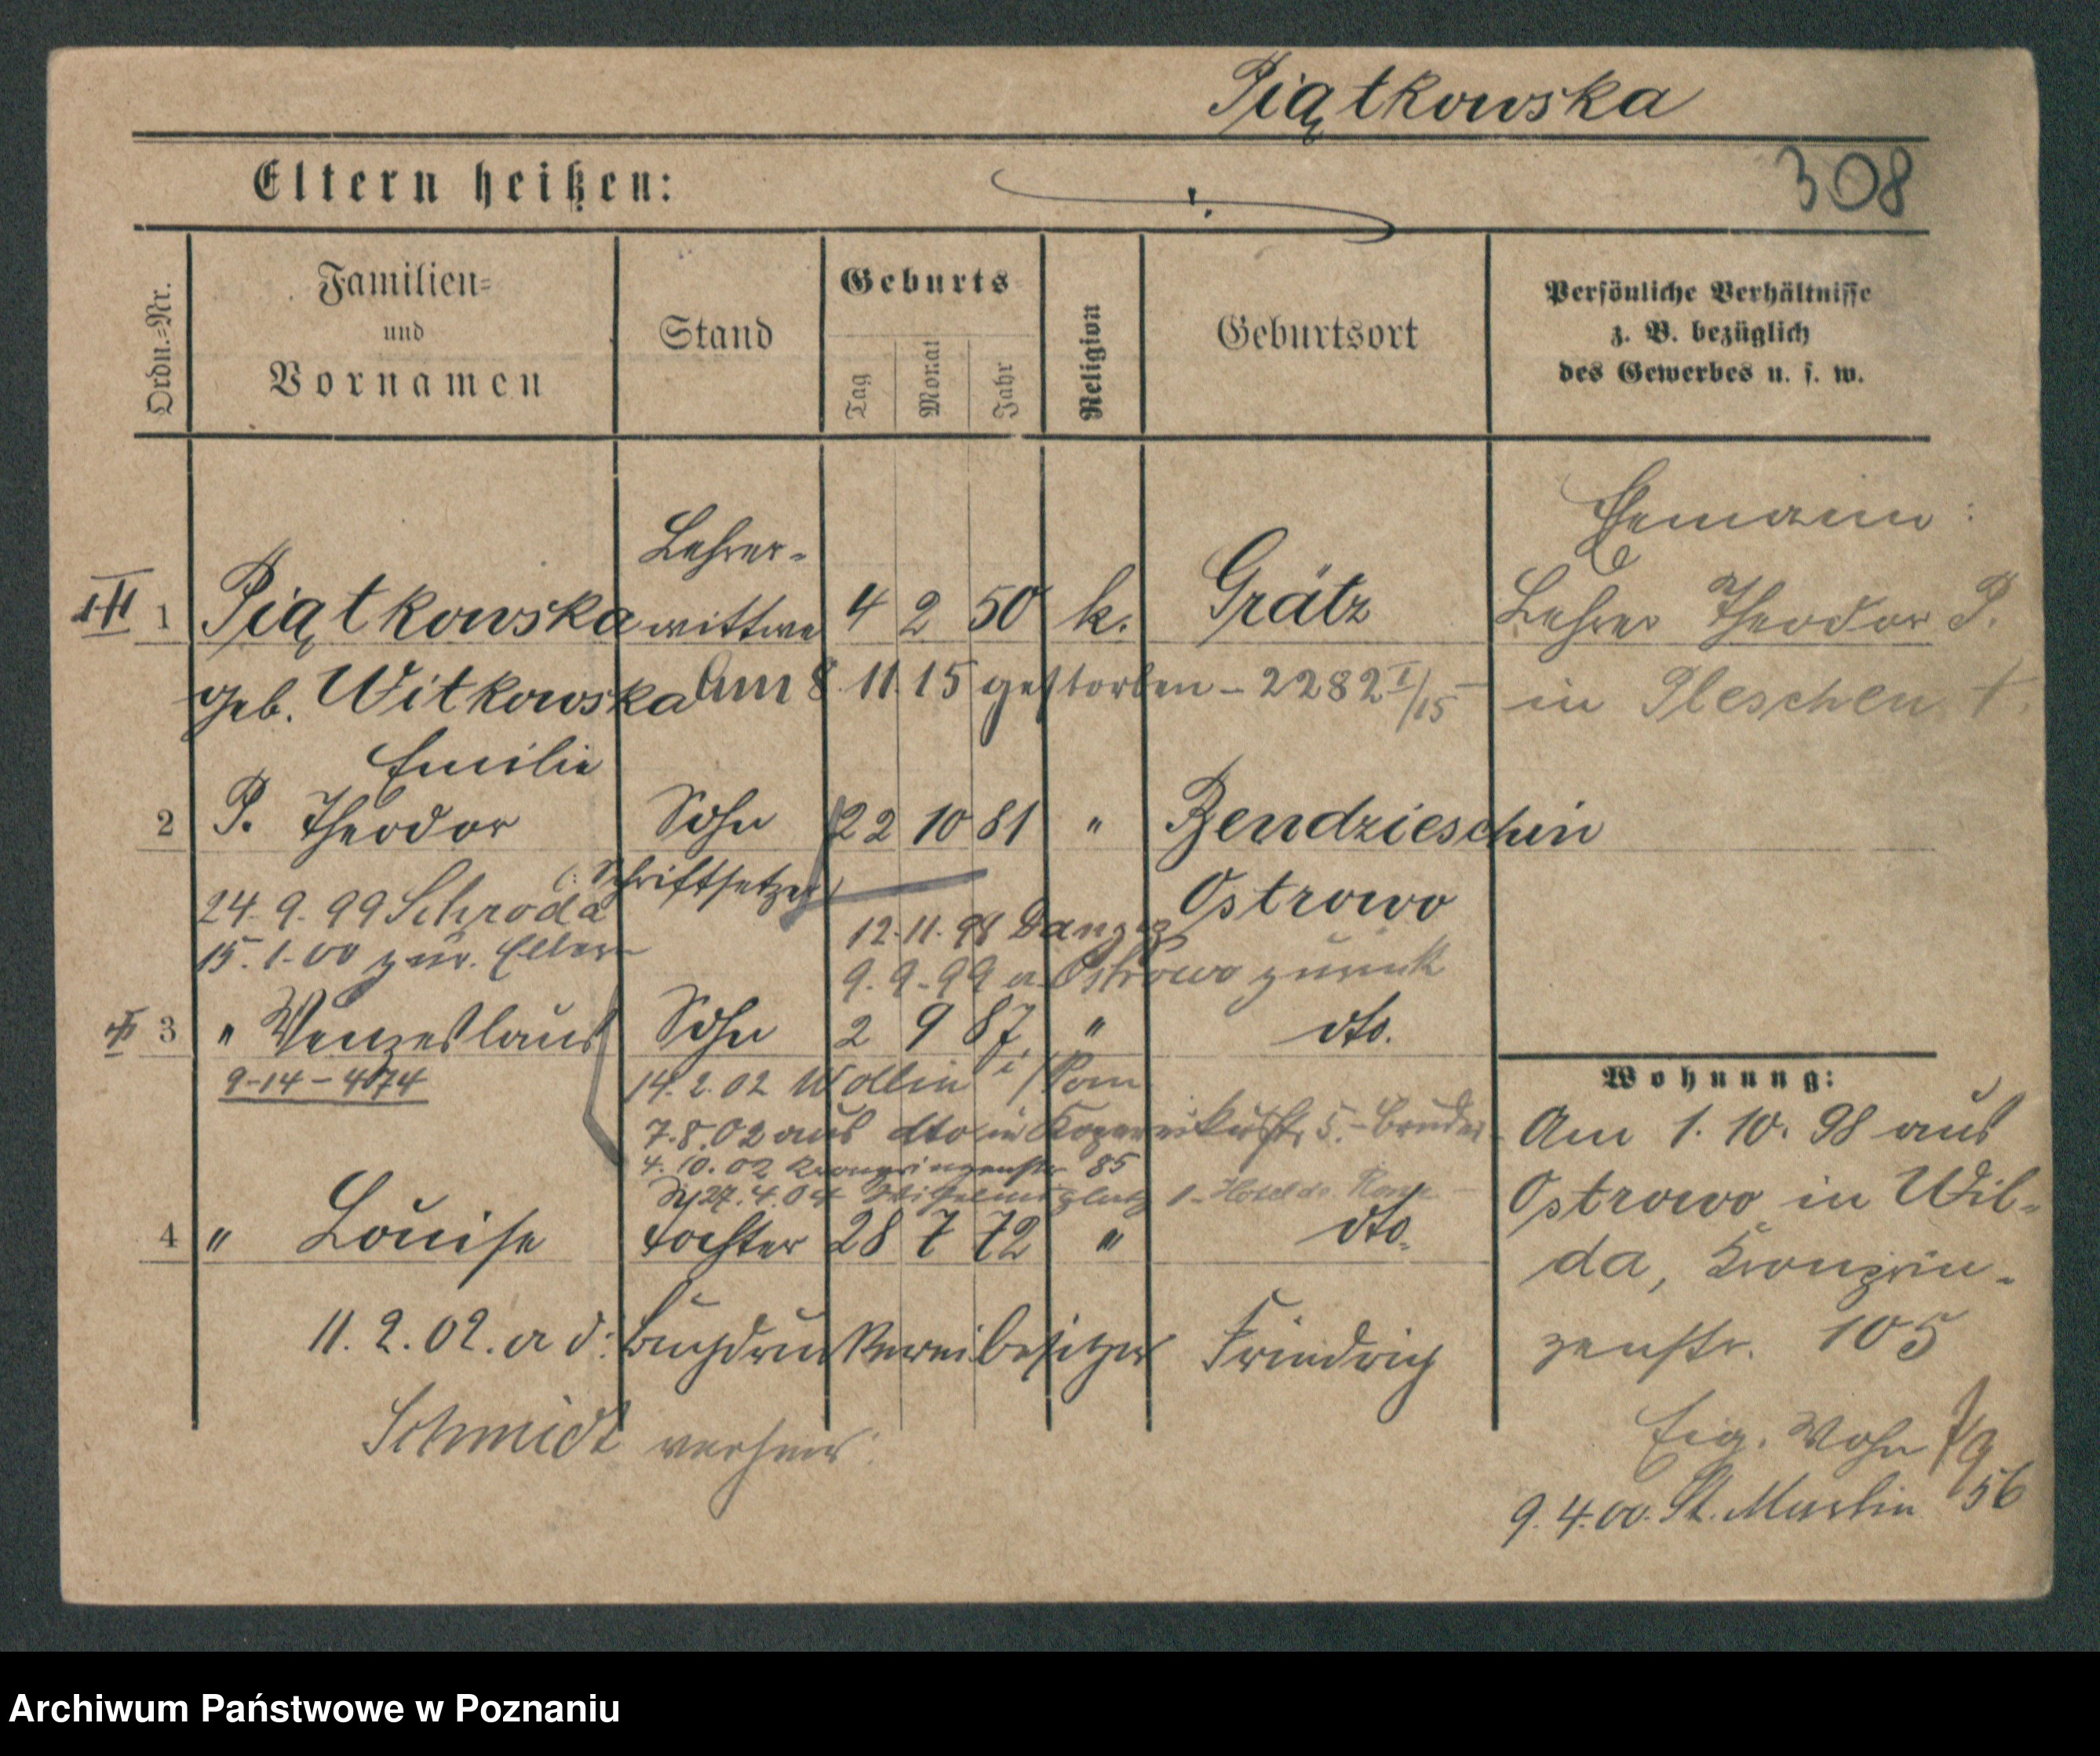 Piątkowska
308
Eltern heißen:
Ordn.-Nr.
Familien- und Vornamen
Stand
Geburts
Tag
Monat
Jahr
Religion
Geburtsort
Persönliche Verhältnisse
z. B. bezüglich
des Gewerbes u. s. w.
Ehemann:
Lehrer Theodor P.
in Pleschen †.
Lehrer-
1 Piątkowska wittwe 4 2 50 k. Grätz
geb. Witkowska Am 8. 11. 15 gestorben - 2282 I/15
Emilie
2 P. Theodor Sohn 22 10 81 " Bendzieschin
(: Schriftsetzer) Ostrowo
24. 9. 99 Schroda
12. 11. 98 Danzig
15. 1. 00 zur.
9. 9. 99 a. Ostrowo zurück
3 " Wenzeslaus Sohn 2 9 87 " dto.
9-14-4074
14. 2. 02 Wollin i/Pom
7. 8. 02 aus dto in Kopernikusstr. 5. - Bruder
4. 10. 02 Kronprinzenstr 85
27. 4. 04 Wilhelmsplatz 1 - Hotel de Rome
4 " Louise Tochter 28 7 72 " dto.
11. 2. 02. a d: Buchdruckereibesitzer Friedrich
Schmidt verheir:
Wohnung:
Am 1. 10. 98 aus
Ostrowo in Wil-
da, Kronprin-
zenstr. 105
Eig. Wohn
9. 4. 00. St. Martin 56
Archiwum Państwowe w Poznaniu